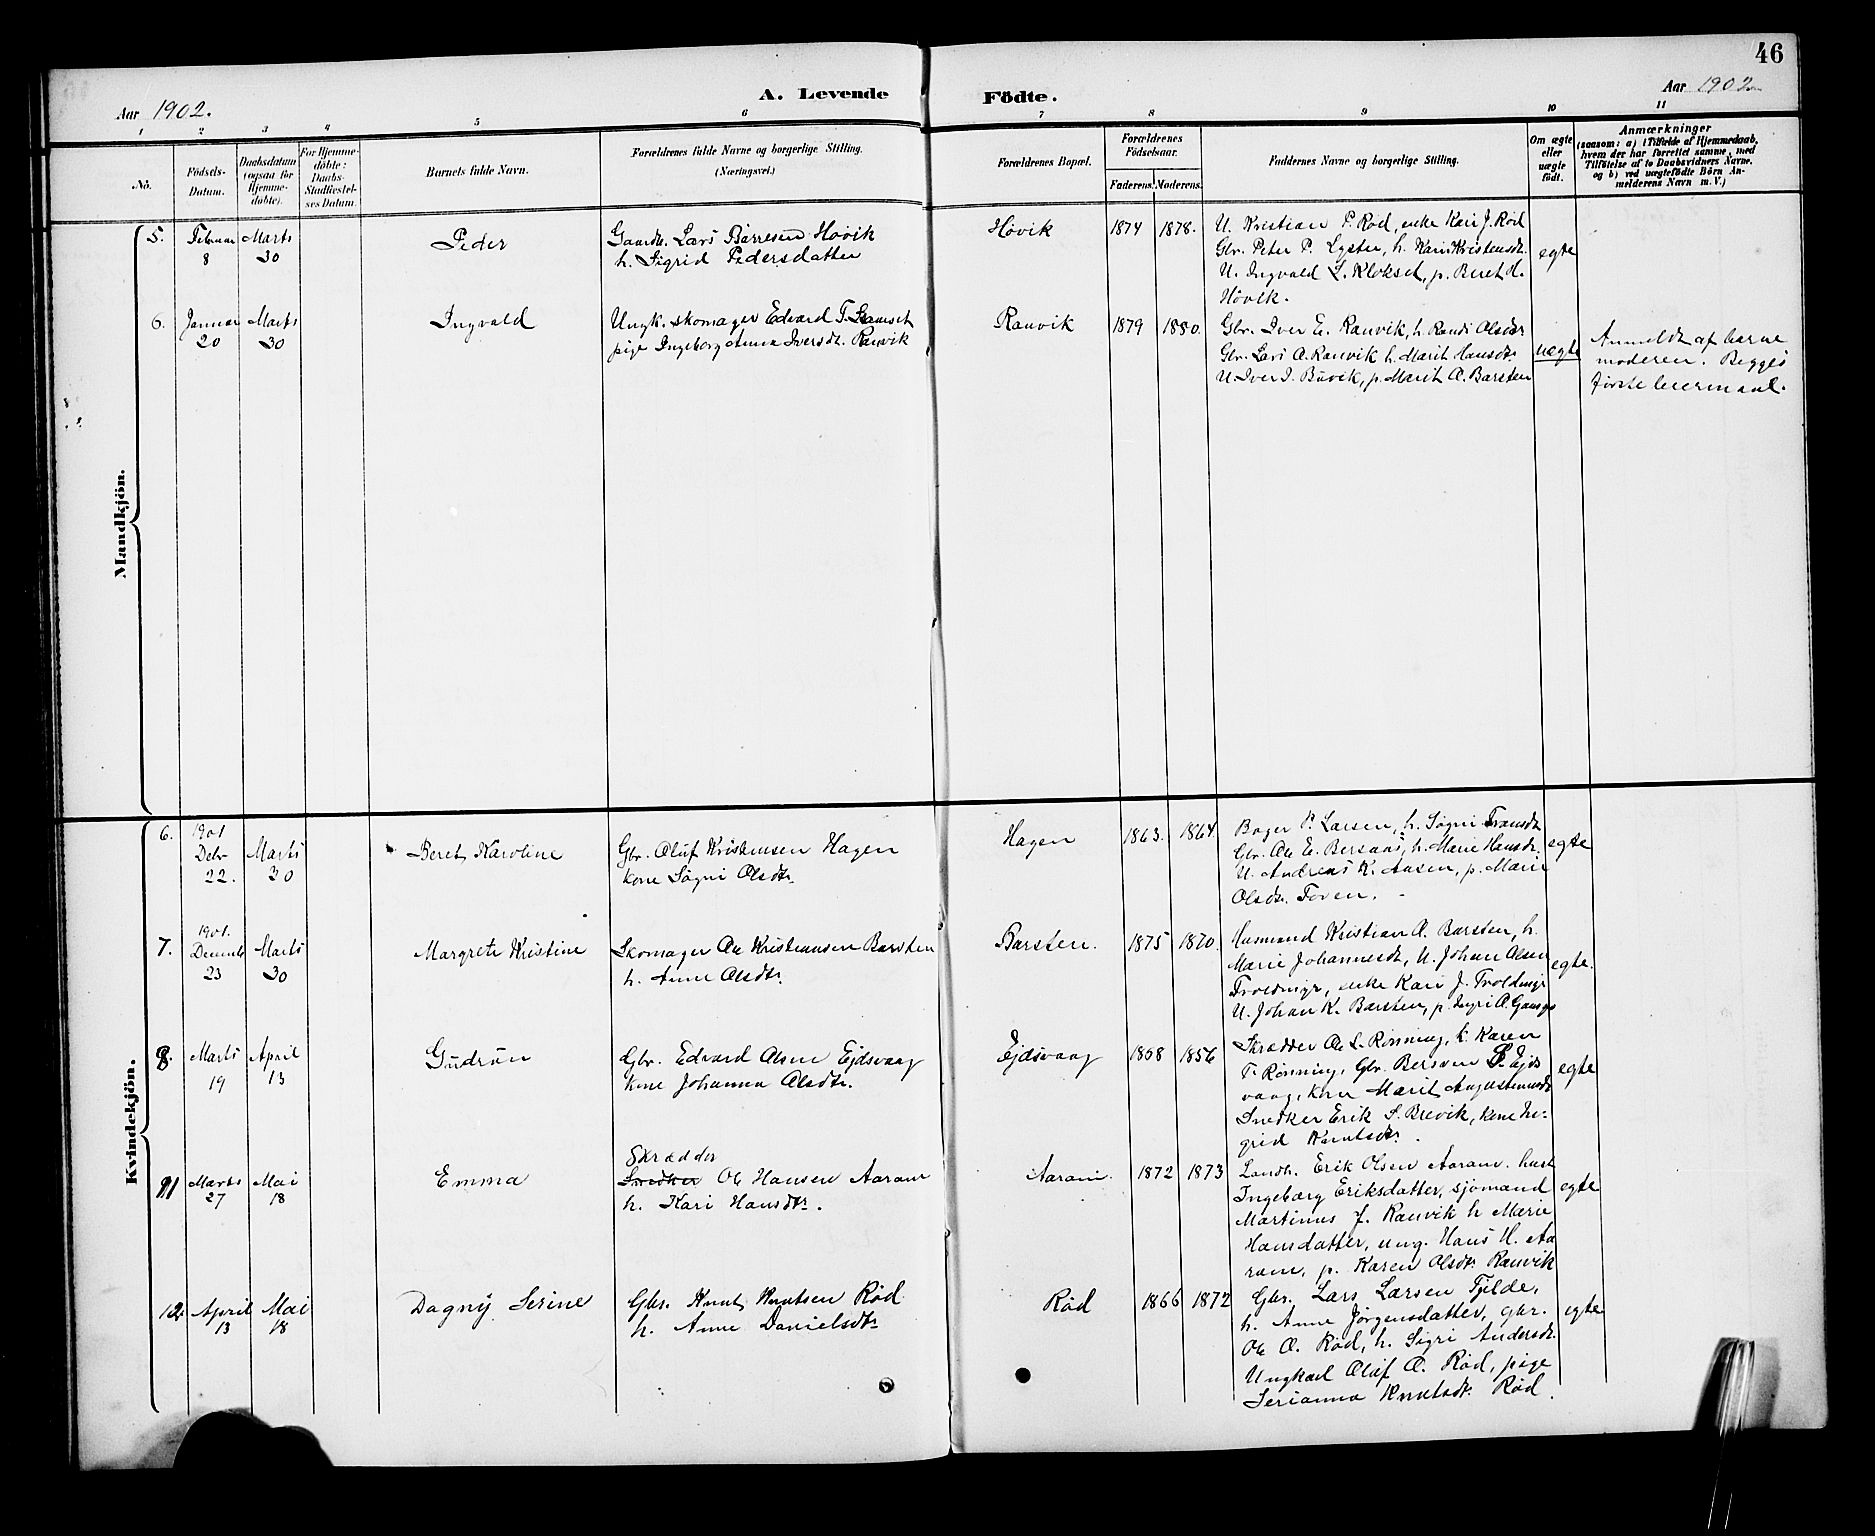 46
Aar 1902.
A. Levende Födte.
Aar 1902
1 2 3 4 5 6 7 8 9 10 11
No.
Födsels-
Datum.
Daabsdatum
(ogsaa for
Hjemme-
döbte).
For Hjemme-
döbte:
Daabs-
Stadfæstel-
ses Datum.
Barnets fulde Navn.
Forældrenes fulde Navne og borgerlige Stilling.
(Næringsvei.)
Forældrenes Bopæl.
Forældrenes
Födselsaar.
Faderens. Moderens.
Faddernes Navne og borgerlige Stilling.
Om ægte
eller
uægte
födt.
Anmærkninger
(saasom: a) i Tilfælde af Hjemmedaab,
hvem der har forrettet samme, med
Tilföielse af to Daabsvidners Navne.
og b) ved uægtefödte Börn An-
melderens Navn m. V.)
Mandkjön.
5.
Februar
8
Marts
30
Peder
Gaardb. Lars Børresen Høvik
h. Sigrid Pedersdatter
Høvik
1874 1878.
U. Kristian P. Rød, enke Kari J. Rød
Gbr. Peter P. Lyster, h. Kari Kristensdt.
U. Ingvald L. Klokset, p. Beret H.
Høvik.
egte
6.
Januar
20
Marts
30
Ingvald
Ungk. skomager Edvard T.
pige Ingeborg Anna Iversdt. Ranvik
Ranvik
1879 1880.
Gbr. Iver E. Ranvik, h. Randi Olsdtr
Gbr. Lars A. Ranvik h. Marit Hansdt.
U. Iver I. Buvik, p. Marit A. Barsten
uægte
Anmeldt af barne
moderen. Begges
første leiermaal.
Kvindekjön.
6.
1901
Debr
22.
Marts
30
Beret Karoline
Gbr. Oluf Kristensen Hagen
kone Søgni Olsdtr.
Hagen
1863. 1864.
Bager P. Larsen, h. Søgni
Gbr. Ole E. Bersaas, h. Marie Hansdt.
U. Andreas K. Aasen, p. Marie
Olsdtr. Toven.
egte
7.
1901.
Decemb
23
Marts
30
Margrete Kristine
Skomager Ole Kristiansen Barsten
h. Anne Olsdtr.
Barsten.
1875 1870.
Husmand Kristian A. Barsten, h.
Marie Johannesdt, U. Johan Olsen
enke Kari J.
U. Johan K. Barsten, p. Ingri O.
egte.
8.
Marts
19
April
13
Gudrun
Gbr. Edvard Olsen Ejdsvaag
kone Johanna Olsdtr.
Ejdsvaag
1868 1856
Skrædder Ole L. Rønning, k. Karen
T. Rønning, Gbr. Bersven S. Ejds
vaag, kone Marit Augustinusdt
Snedker Erik S. Brevik, kone In-
grid Knutsdtr.
egte
11
Marts
27
Mai
18
Emma
Skrædder
Snedker Ole Hansen Aaram
h. Kari Hansdtr.
Aaram.
1872 1873
Landh. Erik Olsen Aaram. hust
Ingeborg Eriksdatter, sjømand
Martinus J. Ranvik h Marie
Hansdatter, ung. Hans H. Aa
ram, p. Karen Olsdtr Ranvik
egte
12.
April
13
Mai
18
Dagny Serine
Gbr. Knut Knutsen Rød
h. Anne Danielsdtr
Rød
1866 1872
Gbr. Lars Larsen Tjelde,
h. Anne Jørgensdatter, gbr.
Ole O. Rød, h. Sigri Andersdt.
Ungkarl Oluf O. Rød, pige
Serianna Knutsdtr Rød.
egte